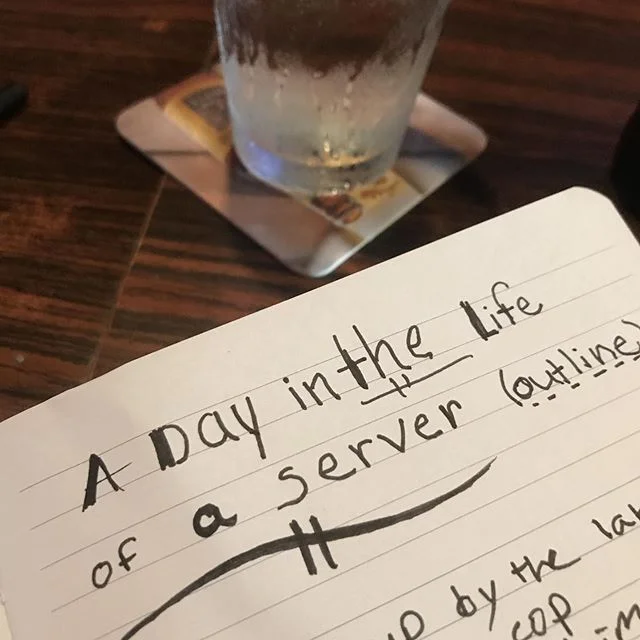 A Day in the Life
of a server (outline)
by the